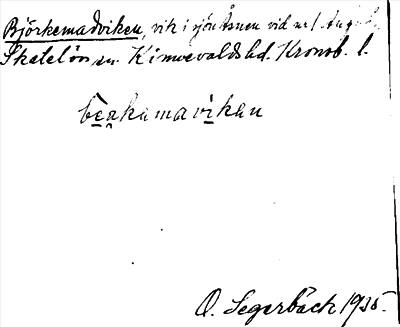 Björkemadviken, vik i sjön Åsnen vid nr 1
Skatelöv sn. Kinnevalds hd. Kronob. l.
beṛkamavikan
O. Segerbäck 1935.